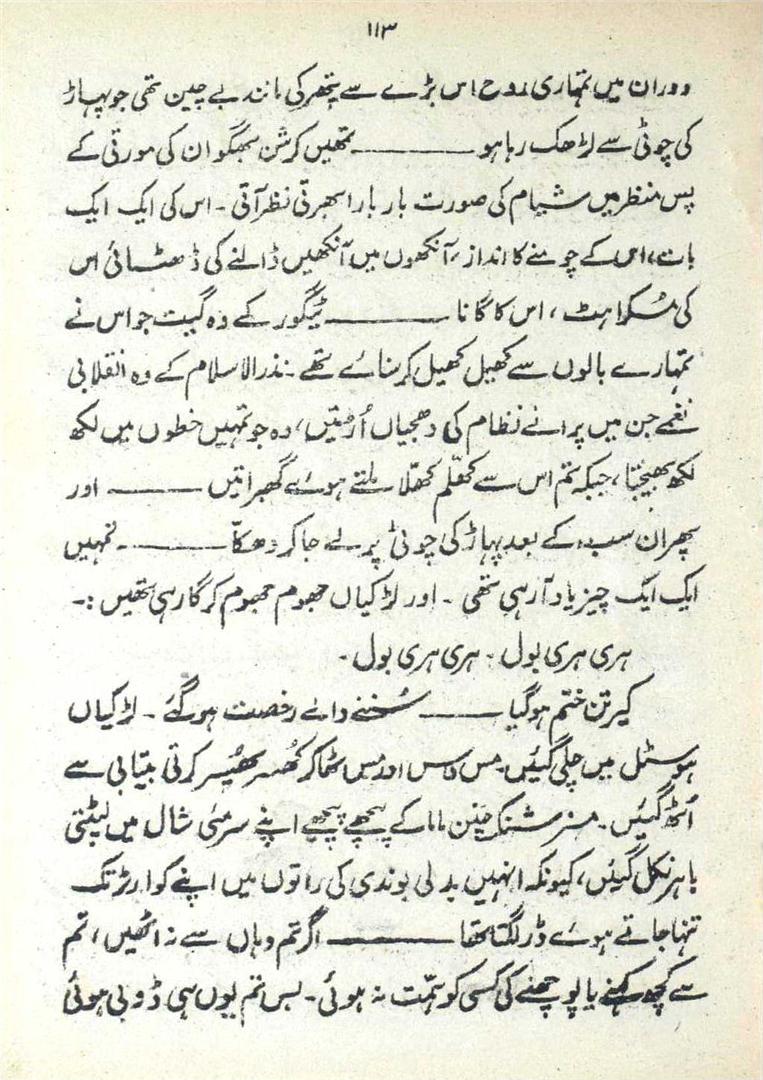 ۱۱۳
دوران میں تمہاری روح اس بڑے سے پتھر کی مانند بے چین تھی جو پہاڑ
کی چوٹی سے لڑھک رہا ہو ــــــــــــ تمھیں کرشن بھگوان کی مورتی کے
پس منظر میں شیام کی صورت بار بار ابھرتی نظر آتی ۔ اس کی ایک ایک
بات، اس کے چومنے کا انداز، آنکھوں میں آنکھیں ڈالنے کی ڈھٹائی اس
کی مسکراہٹ ، اس کا گانا ــــــــــــ ٹیگور کے وہ گیت جو اس نے
تمہارے بالوں سے کھیل کھیل کر سنائے تھے ۔ نذر الاسلام کے وہ انقلابی
نغمے جن میں پرانے نظام کی دھجیاں اُڑتیں، وہ جو تمہیں خطوں میں لکھ
لکھ بھیجتا، جبکہ تم اس سے کھلّم کھلّا ملتے ہوئے گھبراتیں ــــــــــــ اور
پھر ان سب کے بعد پہاڑ کی چوٹی پر لے جا کر دھکّا ــــــــــــ ۔ تمہیں
ایک ایک چیز یاد آ رہی تھی ۔ اور لڑکیاں جھوم جھوم کر گا رہی تھیں :۔
ہری ہری بول ۔ ہری ہری بول ۔
کیرتن ختم ہوگیا ــــــــــــ سُننے والے رخصت ہوگئے ۔ لڑکیاں
ہوسٹل میں چلی گئیں ۔ مس داس اور مس ٹھاکر کھُسر پھُسر کرتی بیتابی سے
اُٹھ گئیں ۔ مسز شنگ چین ماما کے پیچھے پیچھے اپنے سرمئی شال میں لپٹتی
باہر نکل گئیں، کیونکہ انہیں بدلی بوندی کی راتوں میں اپنے کوارٹر تک
تنہا جاتے ہوئے ڈر لگتا تھا ــــــــــــ اگر تم وہاں سے نہ اٹھیں، تم
سے کچھ کہنے یا پوچھنے کی کسی کو ہمّت نہ ہوئی ۔ بس تم یوں ہی ڈوبی ہوئی